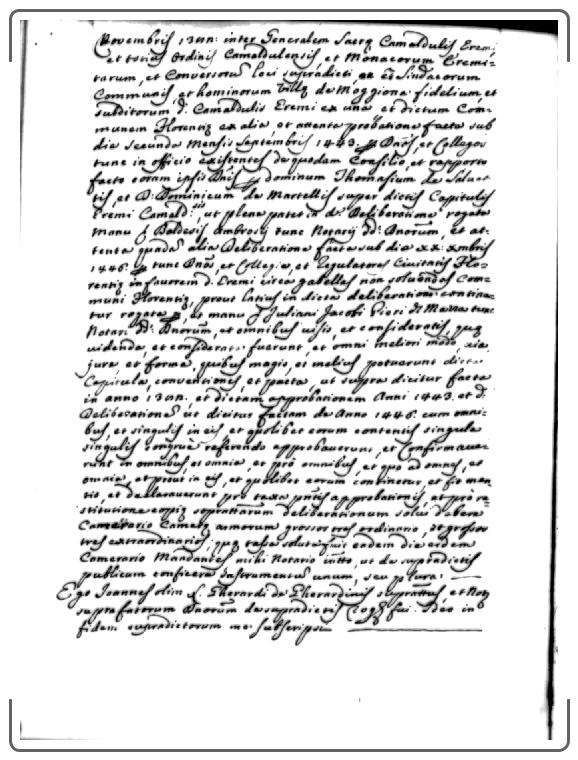 Novembris 1382: inter Generalem Sacrę Camaldulis Eremi
et totius Ordinis Camaldulensis, et Monacorum Eremi-
tarum, et Conversorũ loci supradicti, ex ea Sindacorum
Communis et hominum Villę de Moggiona fidelium, et
subditorum d. Camaldulis Eremi ex una et dictum Com-
munem Florentię ex alia et attenta probatione facta sub
die secunda Mensis Septembris 1443. p Dnõs, et Collegos
tunc in officio existentes de quodam Consilio, et rapporto
facto coram ipsis Dnis p dominum Thomasium de Saluta-
tis, et D: Dominicum de Martellis super dictis Capitulis
Eremi Camald:, ut plene patet in dã Deliberatione rogata
manu f Baldesis Ambrosij tunc Notarij dd: Dnorum, et at-
tenta quadã alia Deliberatione facta sub die xx: xmbris
1446. p tunc Dnõs, et Collegia, et Regulatores Civitatis Flo-
rentię in favorem d. Eremi circa gabelles non solvendas Com-
muni Florentię, prout latius in dicta deliberatione contine-
tur rogata p, et manu f Juliani Jacobi Pieri tunc
Notari dd: Dnorum, et omnibus visis, et consideratis, quę
videnda, et considerata fuerunt, et omni meliori modo, via,
jure, et forma, quibus magis, et melius potuerunt dicta
Capitula, conventiones, et pacta, ut supra dicitur facta
in anno 1382. et dictam approbationem Anni 1443. et d:
Deliberationẽ ut dicitur factam de Anno 1446. cum omni-
bus, et singulis in eis, et quolibet eorum contentis singula
singulis congruè referendo approbaverunt, et Confirmave-
runt in omnibus, et omnia, et pro omnibus, et quo ad omnes, et
omnia, et prout in eis, et quolibet eorum continetur, et fit men
tio, et declaraverunt pro taxa pñtis approbationis, et pro re-
stitutione copię soprattarum deliberationum solvi debere
Camerario Camerę armorum grossos tres ordinario, et grossos
tres extraordinarios, quę taxa soluta fuit eadem die eidem
Camerario Mandantes mihi Notario infto, ut de supradictis
publicum conficere Instrumentũ unum, seu plura:
Ego Joannes olim f. Gherardi de Gherardinis suprattus, et Notus
suprafatorum Dnorum de supradictis rogat fui. Ideo in
fidem supradictorum me subscripsi